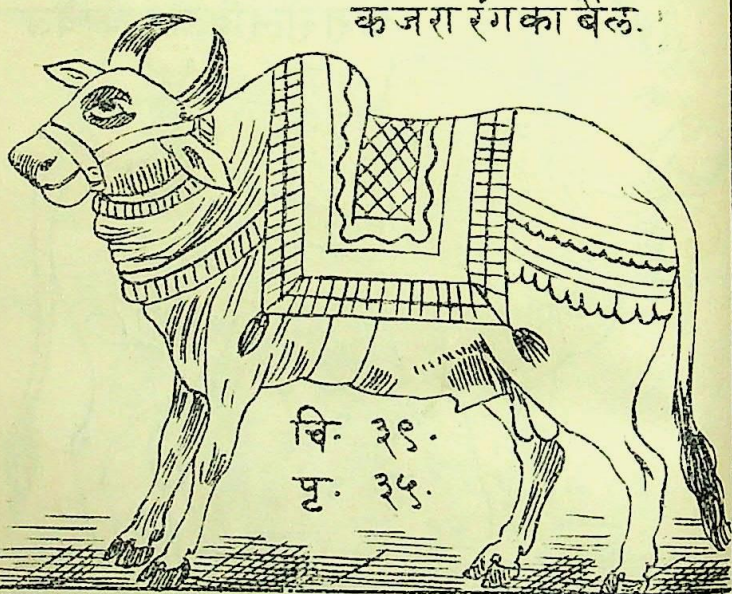 कजरा रंग का बैल.
चि. ३९.
पृ. ३५.